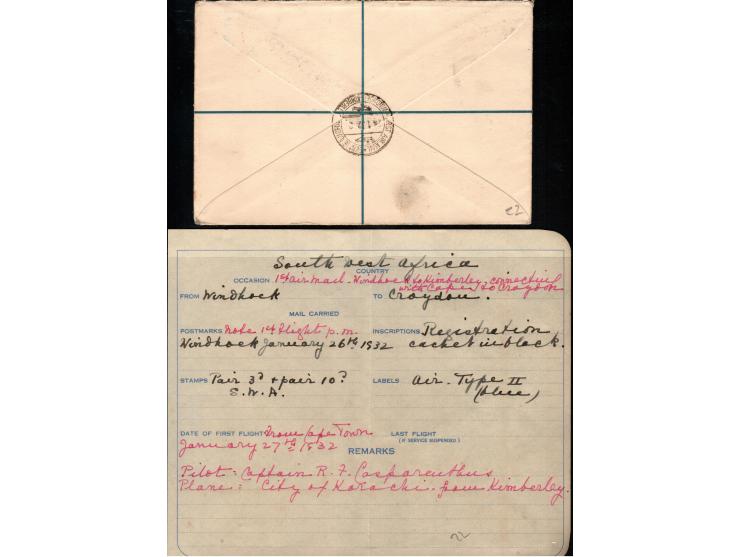 22
South west Africa
COUNTRY
OCCASION 1st air mail - Windhoek to Kimberley - connecting
with Cape to Croydon
FROM Windhoek TO Croydon.
MAIL CARRIED
POSTMARKS Note 1st flight p.m. INSCRIPTIONS Registration
Windhoek January 26th, 1932 cachet in black.
STAMPS Pair 3d + pair 10d LABELS Air - Type II
S.W.A. (blue)
DATE OF FIRST FLIGHT From Cape Town LAST FLIGHT
(IF SERVICE SUSPENDED)
January 27th 1932
REMARKS
Pilot: Captain R. F. Casparcuthus
Plane: City of Karachi - from Kimberley.
22